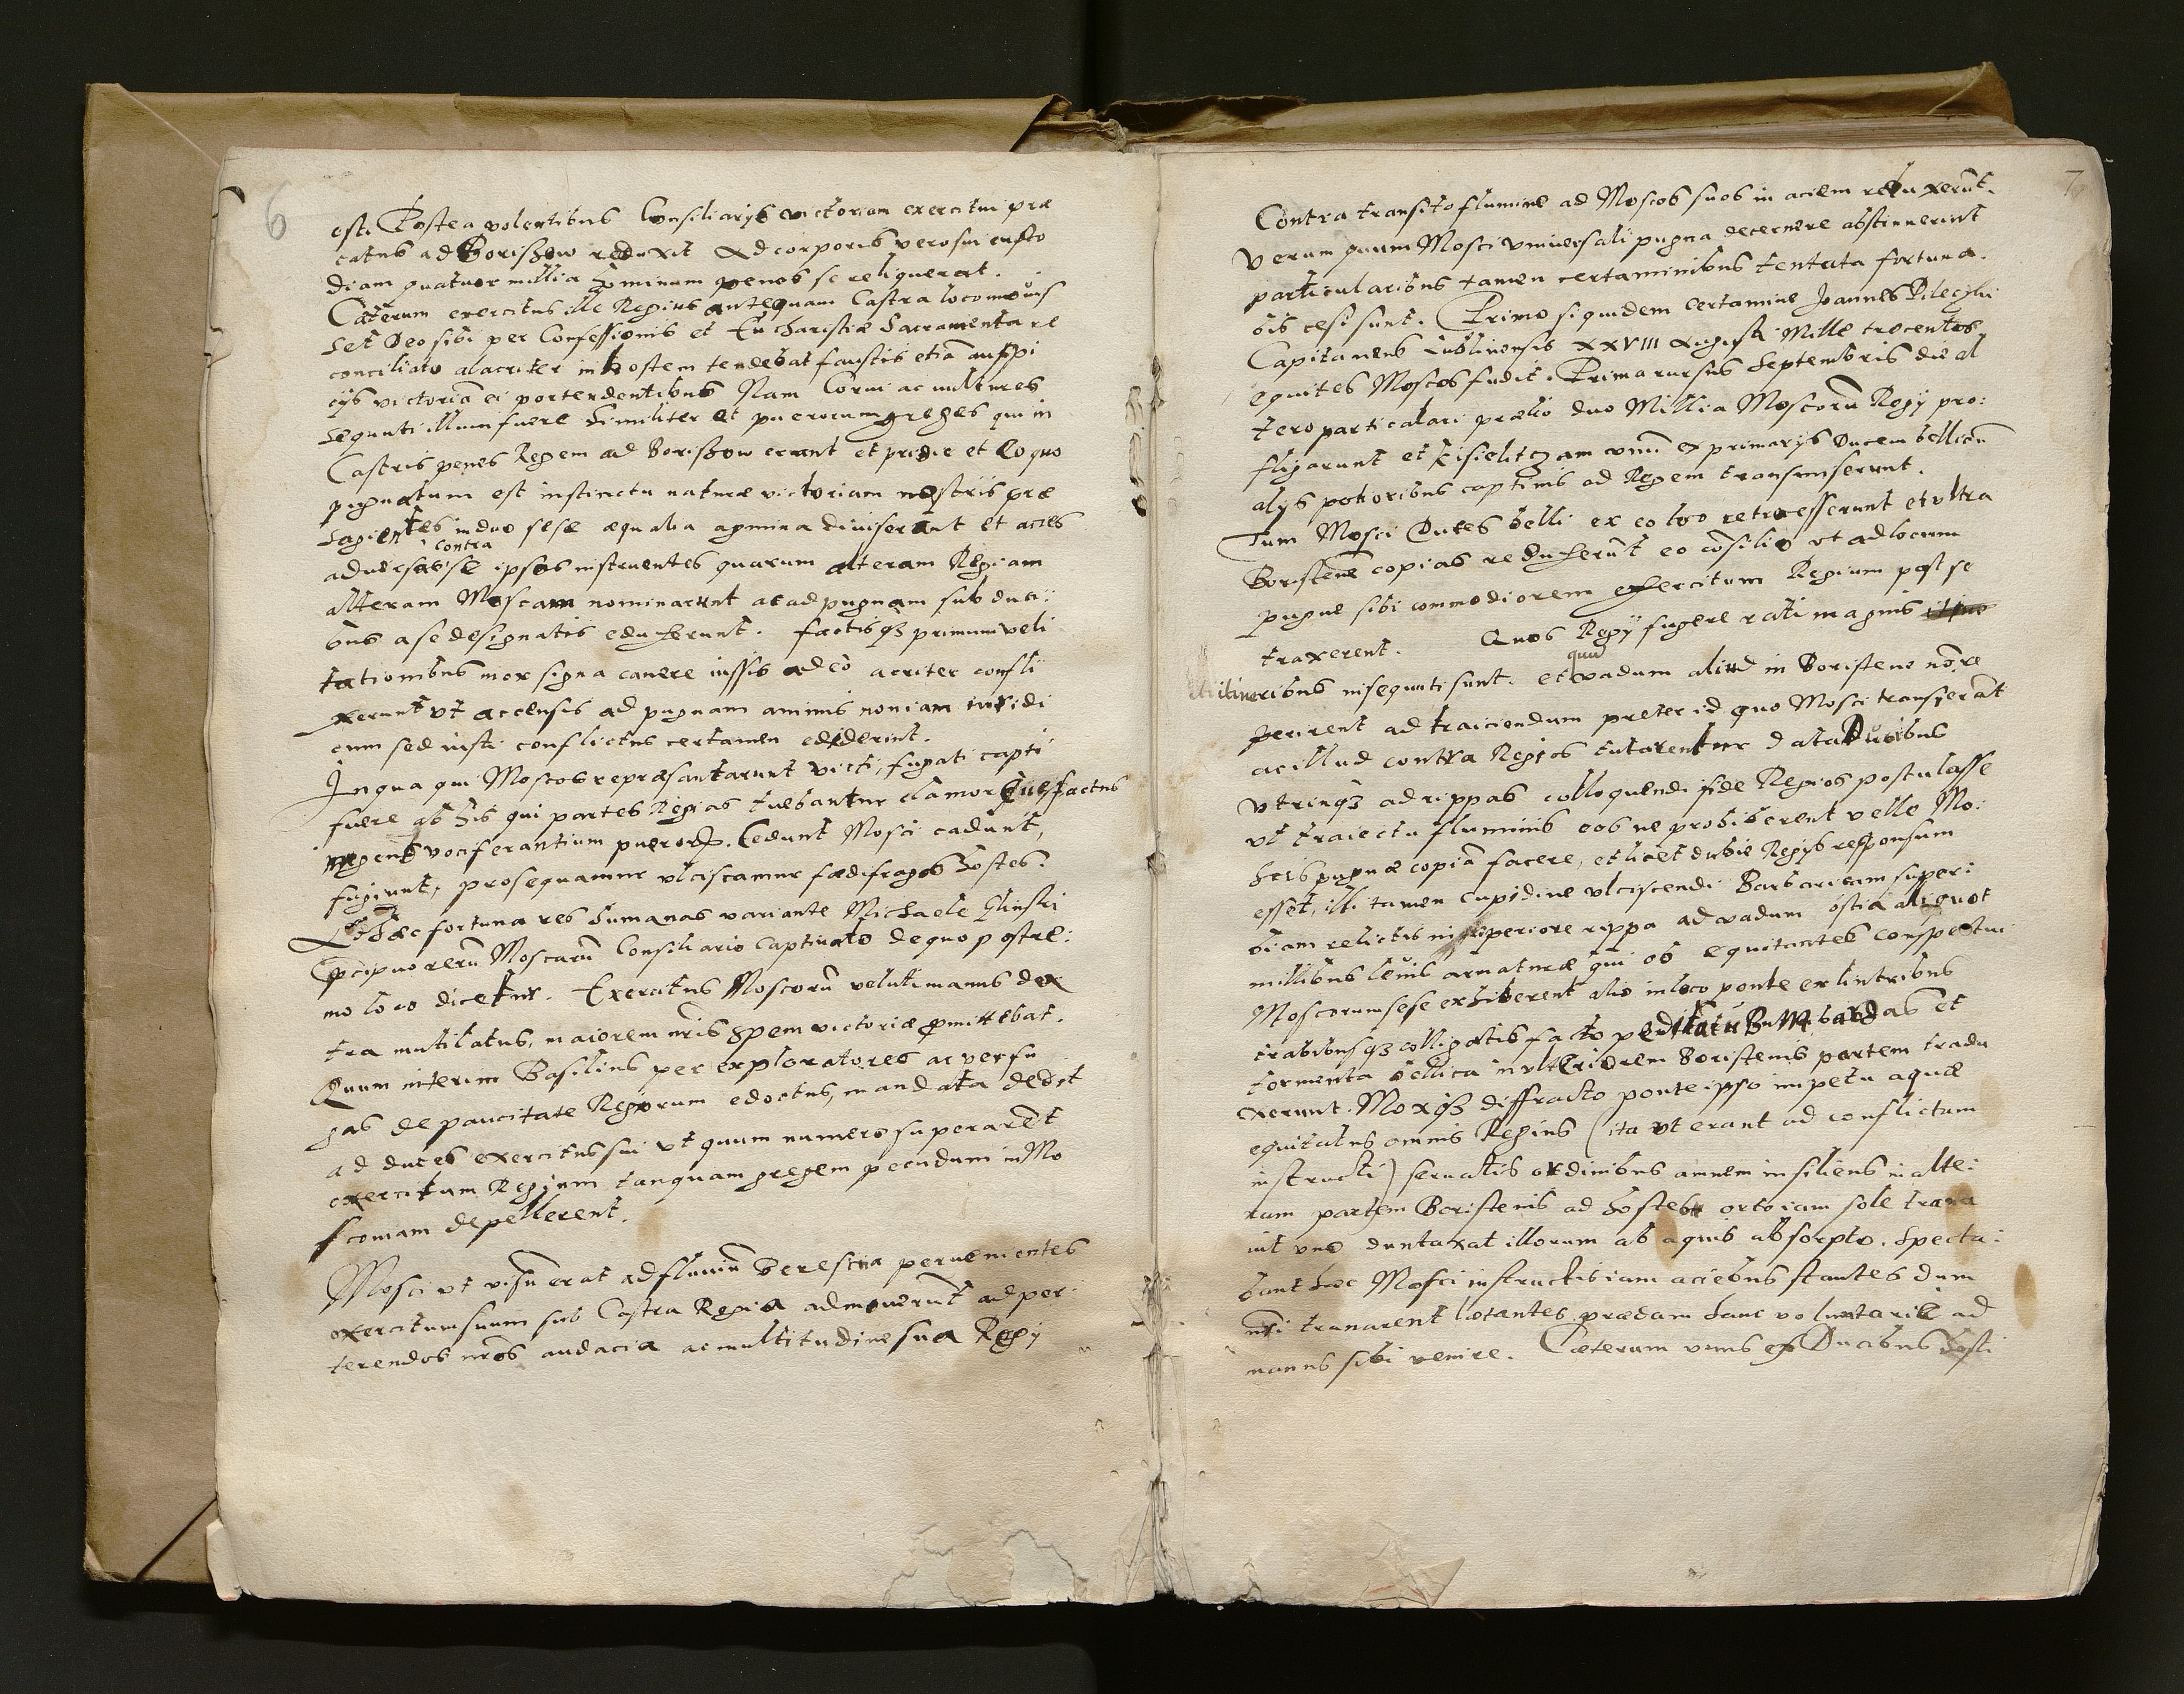 6
esti Postea volentibus Consiliarijs victoriam exercitui præ
catus ad Borishow reduxit Ad corporis vero sui custo
diam quatuor millia hominum penes se reliquerat.
Cæterum exercitus ille Regius antequam Castra locomouis
set Deo sibi per Confessionis et Eucharistiæ Sacramenta re
conciliato alacriter in hostem tendebat faustis etiã auspi
cijs victoriã ei portendentibus Nam Corui ac vultures
sequuti illum fuere Similiter et puerorum greges qui in
Castris penes Regem ad Borishow erant et pridie et eo quo
pugnatum est instinctu naturæ victoriam nostris præ
sagientes in duo sese æqualia agmina diuiserant et acies
contra
aduersabse ipsos instruentes quarum alteram Regiam
alteram Moscam nominarunt ac ad pugnam sub duci:
bus a se designatis eduxerunt. factisq3 primum veli
tationibus mox signa canere iussis adeo acriter confli
xerunt vt accensis ad pugnam animis non iam
cum sed iusti conflictus certamen ediderint.
In qua qui Moscos repræsantarunt victi, fugati capti
fuere ab his qui partes Regias tuebantur clamor
ingens vociferantium puerorum. Cedunt Mosci cadunt,
fugiunt, prosequamur vlciscamur fœdifragos hostes.
hæc fortuna res humanas variante Michaele Glinski
pcipuo rerũ Moscarũ Consiliario Captiuato de quo postre:
mo loco dicetur. Exercitus Moscorũ veluti manus dex
tra mutilatus, maiorem nr̃is spem victoriæ pmittebat.
Quum interim Basilius per exploratores ac perfu
gas de paucitate Regiorum edoctus, mandata dedit
ad duces exercitus sui vt quum numero superarẽt
exercitum Regium tanquam gregem pecudum in Mo
scouiam depellerent.
Mosci vt visũ erat ad fluuiũ Beresina peruenientes
exercitum suum sub Castra Regia admouerũt ad per:
terendos nr̃os audacia ac multitudine sua Regij
7
Contra transito flumine ad Moscos suos in aciem reduxerũt.
Verum quum Mosci vniuersali pugna decernere abstinuerint
particularibus tamen certaminibus tentata fortuna.
bis cesi sunt. Primo siquidem certamine Joannes Pileczki
Capitaneus Lublinensis XXVIII Augusti Mille trecentos
equites Moscos fudit. Prima rursus Septembris die al
tero particulari prælio duo Millia Moscorũ Regij pro:
fligarunt et Kisielitzam vnũ ex primarijs Ducem bellicũ
alijs potioribus captiuis ad Regem transmiserunt.
Tum Mosci Duces belli ex eo loco retrocesserunt et vltra
Boristenẽ copias reduxerũt eo cõsilio vt ad locum
pugne sibi commodiorem exercitum Regium post se
traxerent. Quos Regij fugere rati magnis
quũ
itineribus insequuti sunt. et vadum aliud in Boristene nõ re
perirent ad traiciendum preter id quo Mosci transierãt
ac illud contra Regios tutarentur data Ducibus
vtrinq3 ad rippas colloquendi fide Regios postulasse
vt traiectu fluminis eos ne prohiberent velle Mo:
scis pugnæ copiã facere, et licet dubie Regijs responsum
esset, illi tamen cupidine vlciscendi Barbariem superi
biam relictis in superiore rippa ad vadum ostia aliquot
millibus leuis armaturæ qui ob equitantes conspectui
Moscorum sese exhiberent alio in loco ponte ex lintribus
trabibusq3 colligatis facto peditatũ Bumbardas et
tormenta bellica in vlteriorem Boristenis partem tradu
xerunt. Moxq3 diffracto ponte ipso impetu aquæ
equitatus omnis Regius (ita vt erant ad conflictum
instructi) seruatis ordinibus amnem insiliens in alte:
ram partem Boristenis ad hostes orto iam sole trana
uit vno duntaxat illorum ab aquis absorpto. Specta:
bant hoc Mosci instructis iam aciebus stantes dum
nr̃i tranarent lætantes prædam hanc voluntarie ad
manus sibi venire. Cæterum vnus ex Ducibus hosti